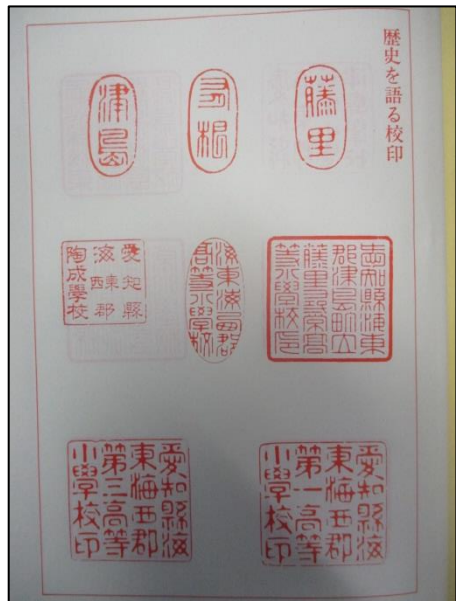 歴史を語る校印
藤里
根
津島
愛知縣海東
郡津島町立
藤里尋常高
等小學校印
海東海西郡
高等小學校
愛知縣
海東郡
陶成學校
愛知縣海
東海西郡
第一高等
小學校印
愛知縣海
東海西郡
第三高等
小學校印